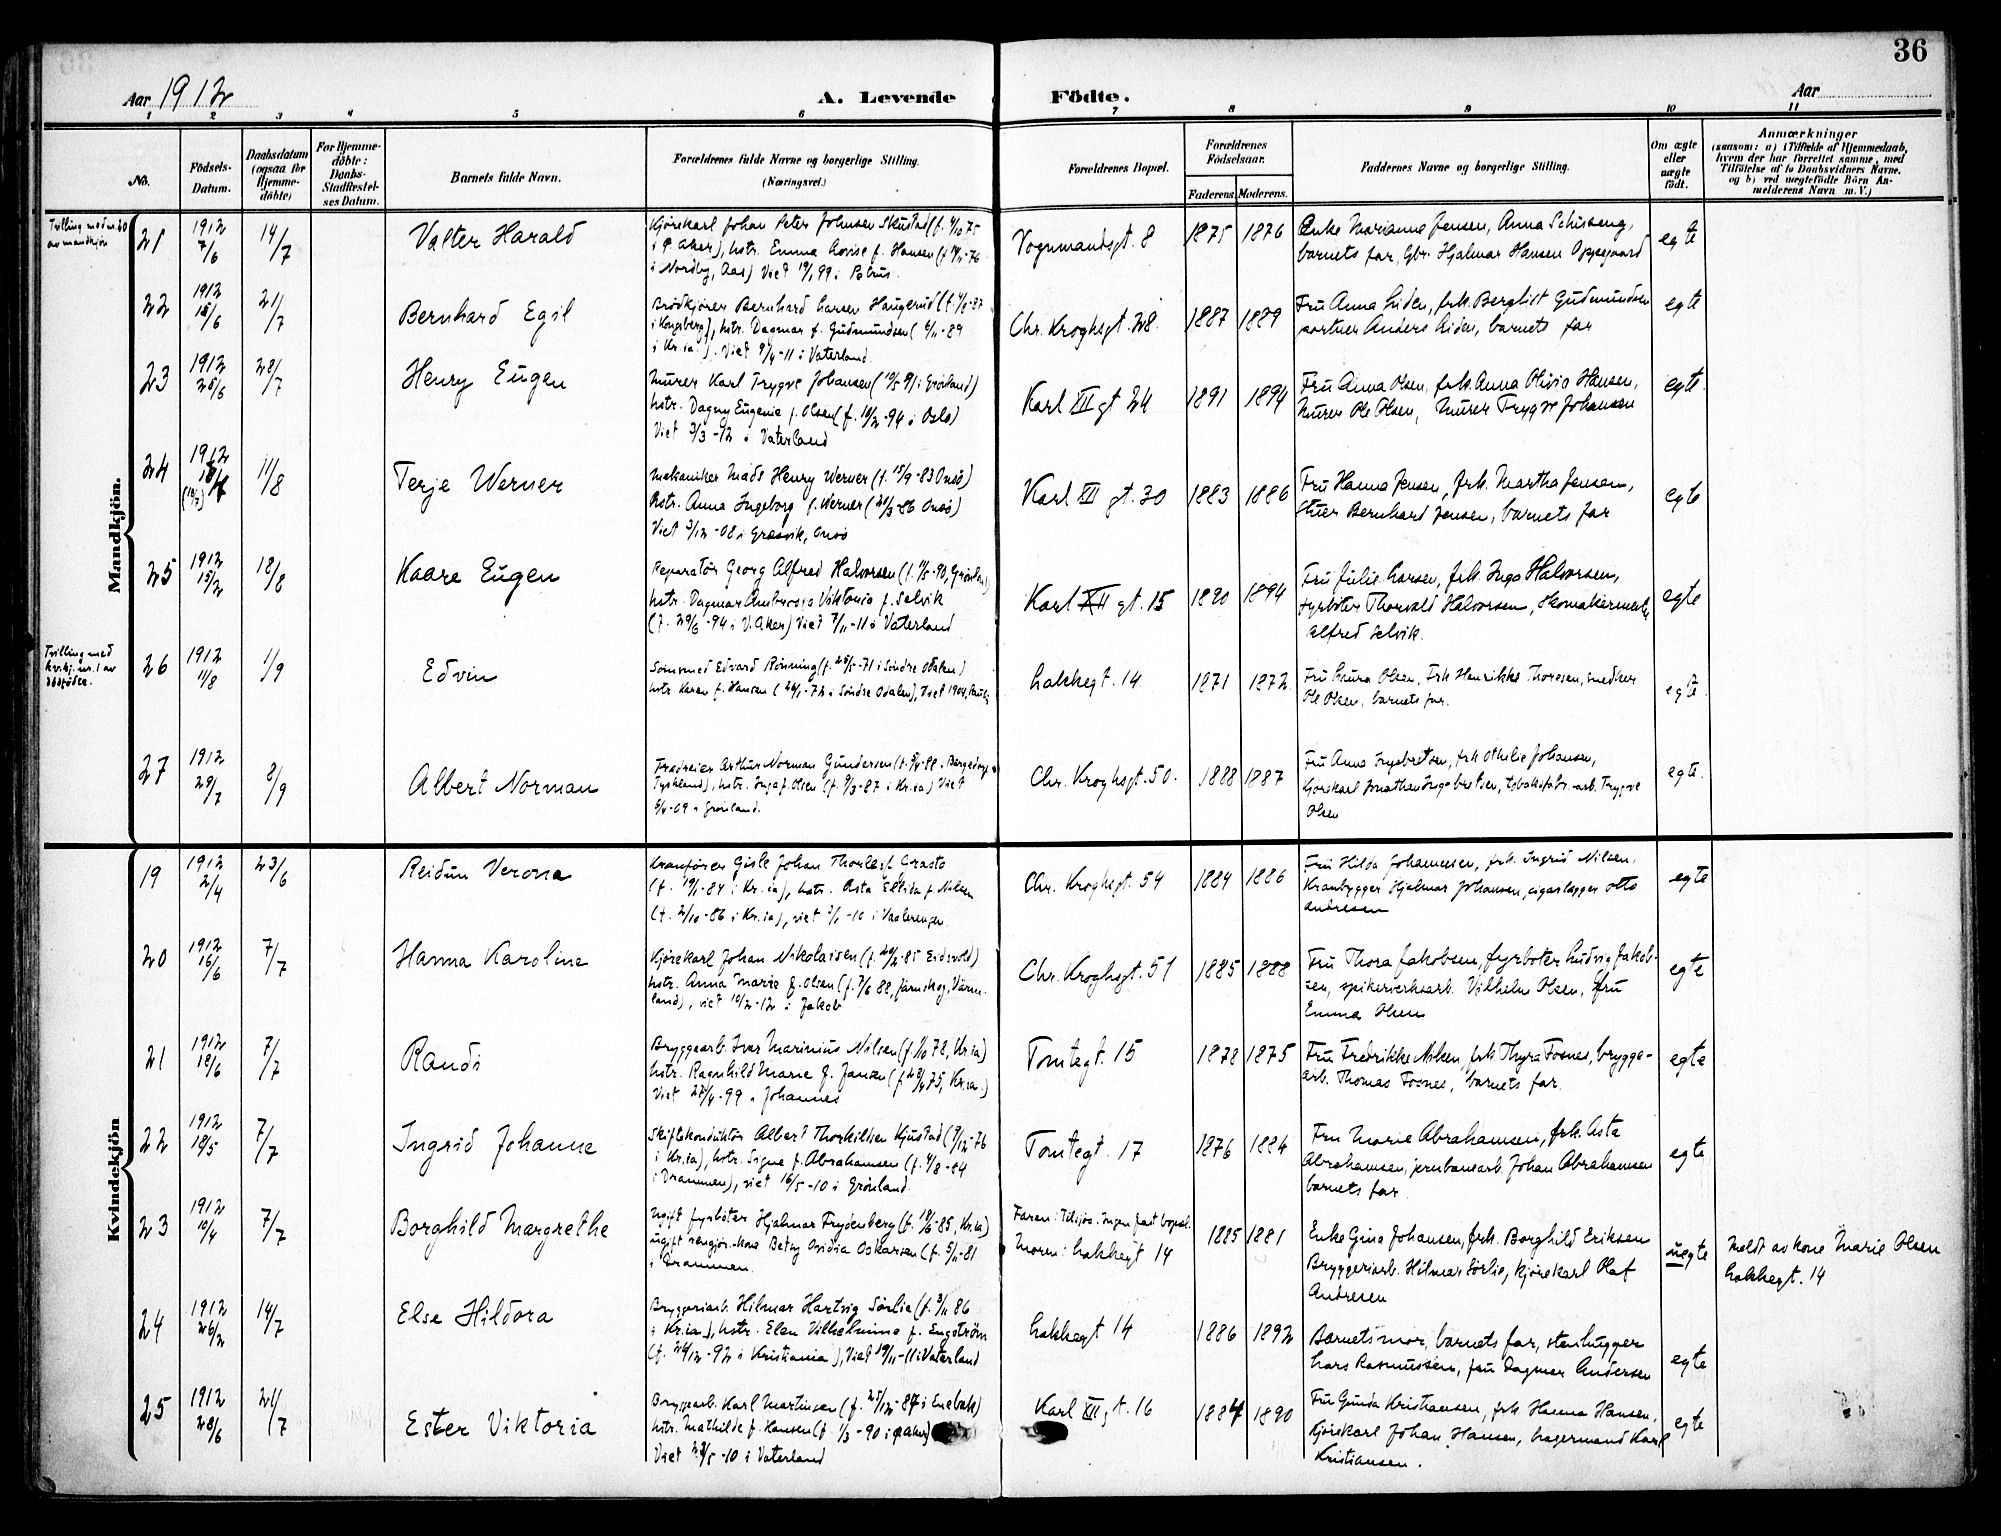 36
Aar 1912
A. Levende Födte.
Aar
1 2 3 4 5 6 7 8 9 10 11
No.
Födsels-Datum.
Daabsdatum (ogsaa for Hjemme-döbte)
For Hjemme-döbte: Daabs-Stadfæstel-ses Datum.
Barnets fulde Navn.
Forældrenes fulde Navne og borgerlige Stilling. (Næringsvei.)
Forældrenes Bopæl.
Forældrenes Födselsaar.
Faderens. Moderens.
Faddernes Navne og borgerlige Stilling.
Om ægte eller uægte födt.
Anmærkninger
(saasom: a) i Tilfælde af Hjemmedaab,
hvem der har forrettet samme, med
Tilföielse af to Daabsvidners Navne,
og b) ved uægtefödte Börn An-
melderens Navn m. V.)
Mandkjön.
Tvilling med nr. 20
av mandkjön
21 1912 7/6 14/7 Valter Harald
Kjörekarl Johan Peter Johnsen Skustad
i Ø. Aker), hstr. Emma Lovise f. Hansen
i Nordby, Aas) Viet 19/1 99 i Petrus.
Vognmandsgt. 8 1875 1876
Enke Marianne Jensen, Anna
barnets far, Gbr. Hjalmar Hansen Oppegaard
egte
22 1912 15/6 21/7 Bernhard Egil
Brödkjörer Bernhard Larsen Haugerud
i Kongsberg), hstr. Dagmar f. Gudmundsen
i Kr.ia). Viet 9/4-11 i Vaterland.
Chr. Kroghsgt. 28. 1887 1889
Fru Anna Liden, frk. Bergliot Gudmundsen
portner Anders Liden, barnets far
egte
23 1912 25/6 28/7 Henry Eugen
Murer Karl Trygve Johansen (19/5 91 i Grönland)
hstr. Dagny Eugenie f. Olsen (f. 10/2-94 i Oslo)
Viet 3/3-12 i Vaterland
Karl XII gt 24 1891 1894
Fru Anna Olsen, frk. Anna Olivia Hansen,
Murer Ole Olsen, Murer Trygve Johansen
egte.
24 1912 11/8 Terje Werner
Mekaniker Mads Henry Werner (f. 15/9-83 Onsö)
hstr. Anna Ingeborg f. Werner (21/3-86 Onsö)
Viet 3/12-08 i Græsvik, Onsö
Karl XII gt. 30 1883 1886
Fru Hanna Jensen, frk. Martha Jensen,
stuer Bernhard Jensen, barnets far
egte
25 1912 15/2 18/8 Kaare Eugen
Reparatör Georg Alfred Halvorsen
hstr. Dagmar Ambrosia Viktoria f. Selvik
(f. 29/6-94 i V. Aker) Viet 7/11-11 i Vaterland
Karl XII gt. 15 1890 1894
Fru Julie Larsen, frk. Inga Halvorsen,
fyrböter Thorvald Halvorsen, Skomakermester
Alfred Selvik.
egte
Tvilling med
kv.kj. nr. 1 av
dödfödte.
26 1912 11/8 1/9 Edvin
Edvard Rönning (f. 28/5-71 i Söndre Odalen)
hstr. Karen f. Hansen (26/1-72 i Söndre Odalen), Viet 1904
Lakkegt. 14. 1871 1872.
Fru Laura Olsen, Frk Henrikke Thoresen, smedker
Ole Olsen, barnets far.
egte.
27 1912 29/7 8/9 Albert Norman
Arthur Norman Gundersen
Tyskland), hstr. Inga f. Olsen (f. 9/3-87 i Kr.ia) Viet
5/4-09 i Grönland.
Chr. Kroghsgt. 50. 1888 1887
Fru Anna Ingebretsen, frk Othilie Johansen,
Kjörekarl Jonathan Ingebretsen, tobaksfabr.-arb. Trygve
Olsen
egte.
Kvindekjön
19 1912 2/4 23/6 Reidun Verona
Kranförer Gisle Johan
(f. 19/1-84 i Kr.ia), hstr. Asta Elida f. Nilsen
(f. 2/10-86 i Kr.ia), viet i Vaalerengen
Chr. Kroghsgt. 54 1884 1886
Fru Hilda Johannesen, frk. Ingrid Nilsen,
Kranbygger Hjalmar Johansen, Otto
Andresen
egte
20 1912 16/6 7/7 Hanna Karoline
Kjörekarl Johan Nikolaisen (f. 20/2-85 Eidsvold)
hstr. Anna Marie f. Olsen (f. 3/6 88, Järnskog, Värm-
land), viet 10/2-12 i Jakob
Chr. Kroghsgt. 51 1885 1888
Fru Thora Jakobsen, fyrböter Ludvig Jakob-
sen, spikerverksarb. Vilhelm Olsen, fru
Emma Olsen
egte
21 1912 18/6 7/7 Randi
Bryggearb. Ivar Marinius Nilsen (f. 1/10 78, Kr.ia)
hstr. Ragnhild Marie f. Jansen
Viet 22/4-99 i Johannes
Tomtegt. 15 1878 1875
Fru Fredrikke Nilsen, frk Thyra Fosnes, brygge-
arb. Thomas Fosnes, barnets far.
egte
22 1912 18/5 7/7 Ingrid Johanne
Skiftekonduktör Albert Thorkildsen Kjustad (9/12-76
i Kr.ia), hstr. Signe f. Abrahamsen (f. 4/8-84
i Drammen), viet 16/5-10 i Grönland.
Tomtegt. 17 1876 1884
Fru Marie Abrahamsen, frk. Asta
Abrahamsen, jernbanearb. Johan Abrahamsen
barnets far.
egte
23 1912 10/4 7/7 Borghild Margrethe
Ugift fyrböter Hjalmar Frydenberg (f. 18/6-85, Kr.ia)
ugift rengjör.-kone Betsy Ovidia Oskarsen (f. 5/11-81
i Drammen.
Faren: Tilsjös. Ingen fast bopæl.
Moren: Lakkegt 14
1885 1881
Enke Gina Johansen, frk. Borghild Eriksen
Bryggeriarb. Hilmar Sörlie, kjörekarl Olaf
Andresen
uegte
Meldt av kone Marie Olsen
Lakkegt. 14
24 1912 26/2 14/7 Else Hildora
Bryggeriarb. Hilmar Hartvig Sörlie (f. 3/11 86
i Kr.ia), hstr. Elen Vilhelmine f. Engström
(f. 24/12-92 i Kristiania), Viet 19/11-11 i Vaterland
Lakkegt 14 1886 1892
Barnets mor, barnets far, stenhugger
Lars Rasmussen, fru Dagmar Andersen
egte
25 1912 28/6 21/7 Ester Viktoria
Bryggearb. Karl Martinsen (f. 25/12-87 i Enebak)
hstr. Mathilde f. Hansen (f. 1/3-90 i Ø. Aker)
Viet 22/5-10 i Vaterland
Karl XII gt. 16 1887 1890
Fru Gunda Kristiansen, frk Hanna Hansen,
Kjörekarl Johan Hansen, lagermand Karl
Kristiansen.
egte